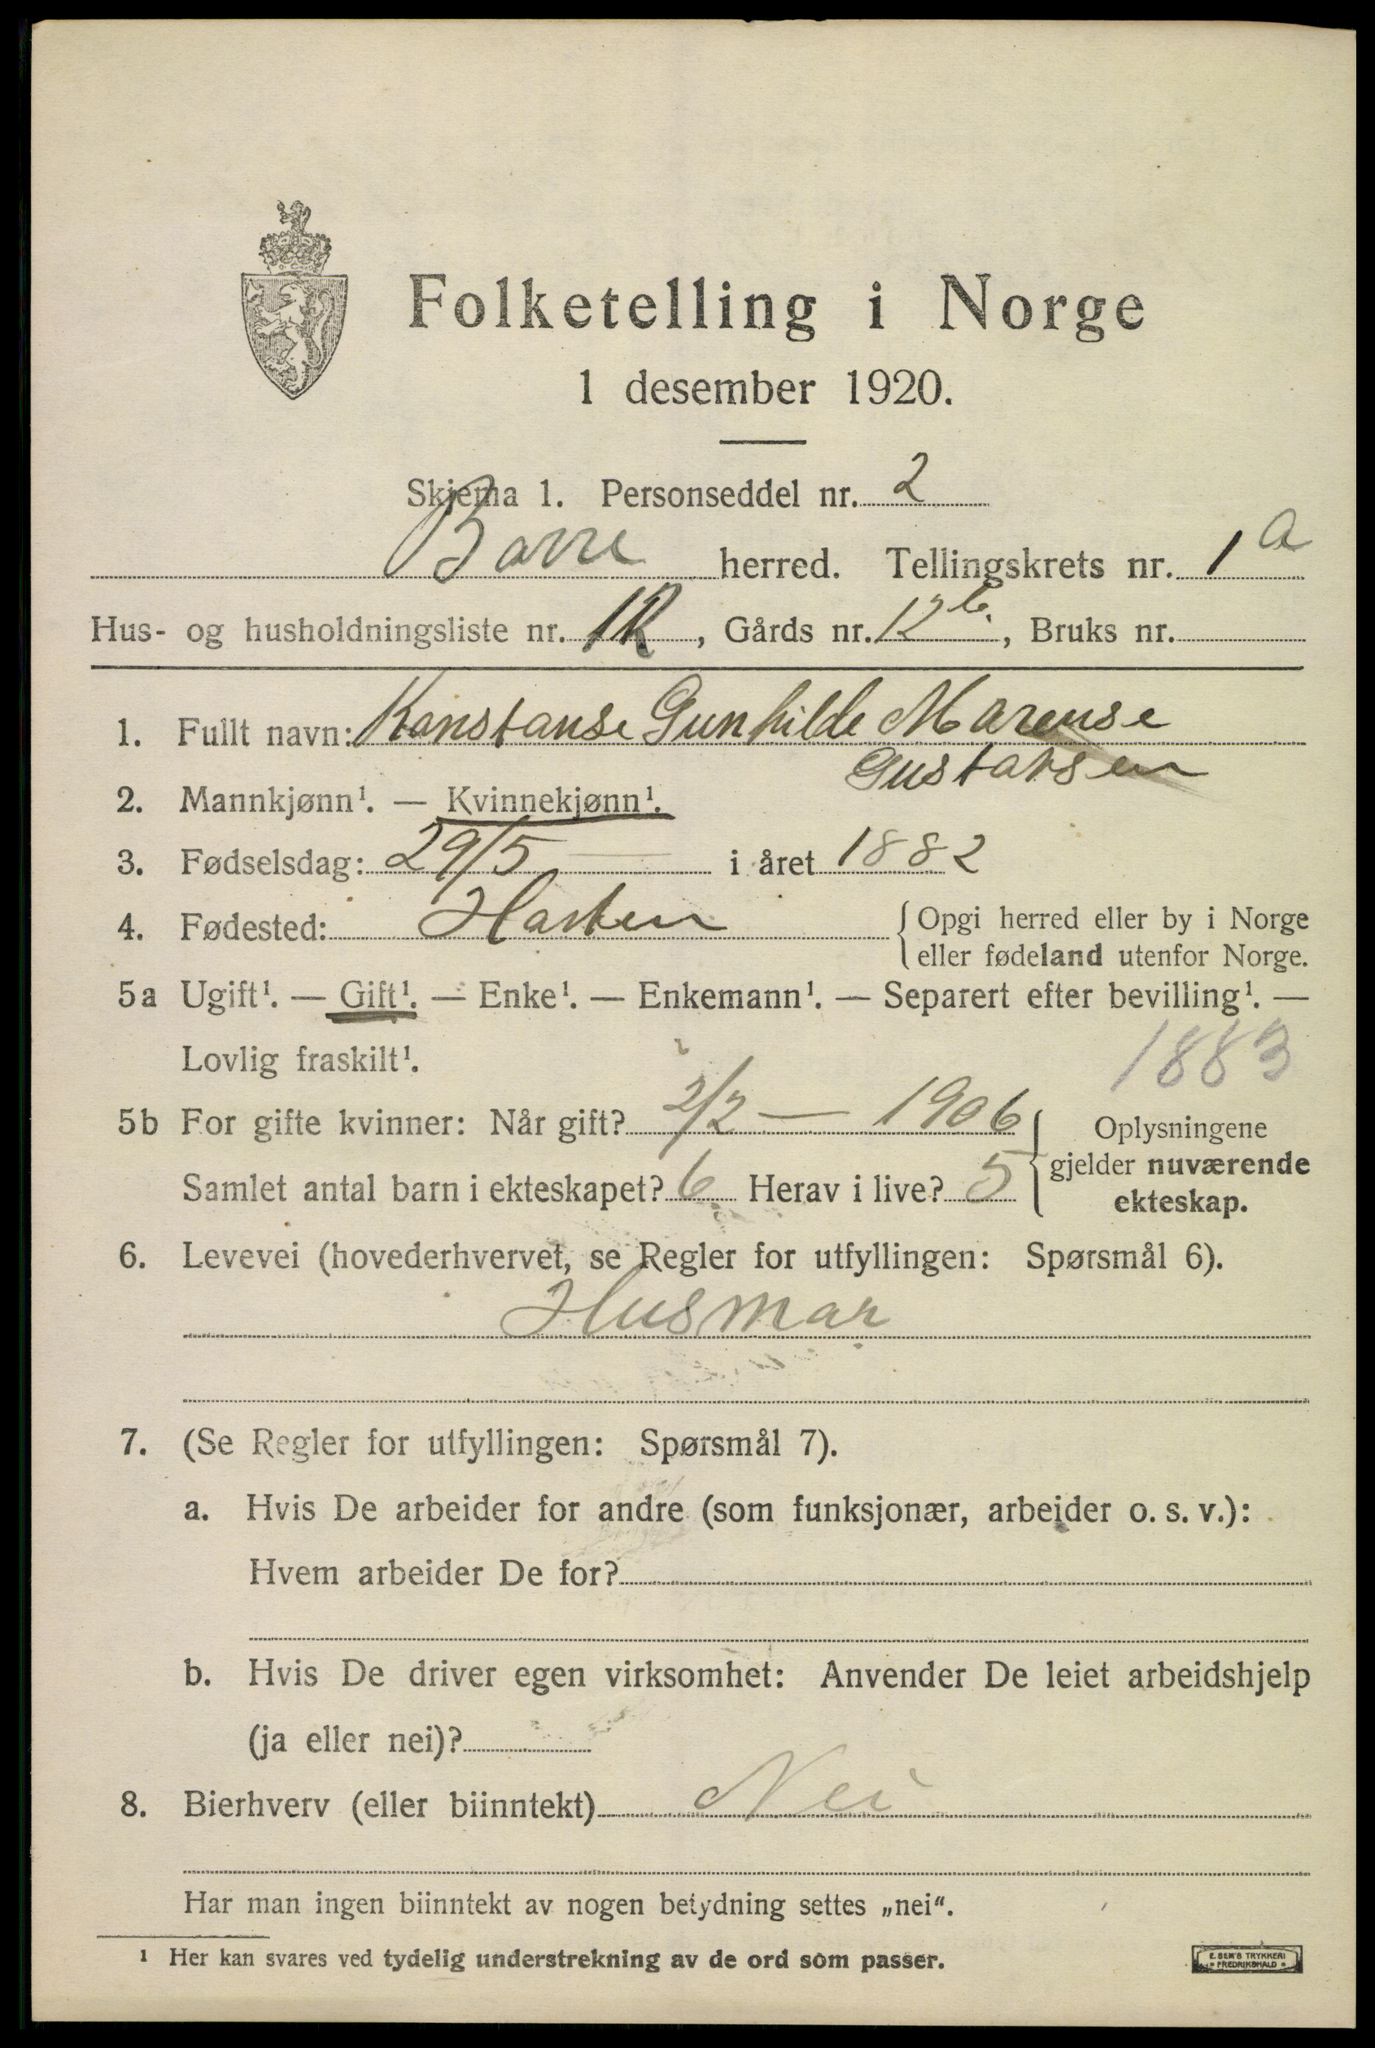 Folketelling i Norge
1 desember 1920.
Skjema 1. Personseddel nr. 2
Borre herred. Tellingskrets nr. 1 a
Hus- og husholdningsliste nr. 12, Gårds nr. 12 b, Bruks nr.
1. Fullt navn: Konstanse Gunhilde Marense
Gustavsen
2. Mannkjønn¹. — Kvinnekjønn¹.
3. Fødselsdag: 29/5 — i året 1882
4. Fødested: Horten { Opgi herred eller by i Norge
eller fødeland utenfor Norge.
5a Ugift¹. — Gift¹. — Enke¹. — Enkemann¹. — Separert efter bevilling¹. —
Lovlig fraskilt¹. 1883
5b For gifte kvinner: Når gift? 2/2 — 1906
Samlet antal barn i ekteskapet? 6 Herav i live? 5
Oplysningene
gjelder nuværende
ekteskap.
6. Levevei (hovederhvervet, se Regler for utfyllingen: Spørsmål 6).
Husmor
7. (Se Regler for utfyllingen: Spørsmål 7).
a. Hvis De arbeider for andre (som funksjonær, arbeider o. s. v.):
Hvem arbeider De for?
b. Hvis De driver egen virksomhet: Anvender De leiet arbeidshjelp
(ja eller nei)?
8. Bierhverv (eller biinntekt) Nei
Har man ingen biinntekt av nogen betydning settes „nei“.
¹ Her kan svares ved tydelig understrekning av de ord som passer.
E. SEM'S TRYKKERI
FREDRIKSHALD